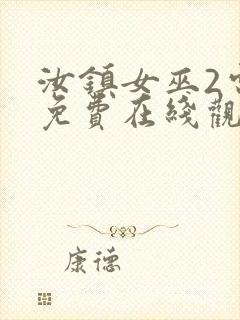 汝鎮女巫2
免費在綫觀
康德